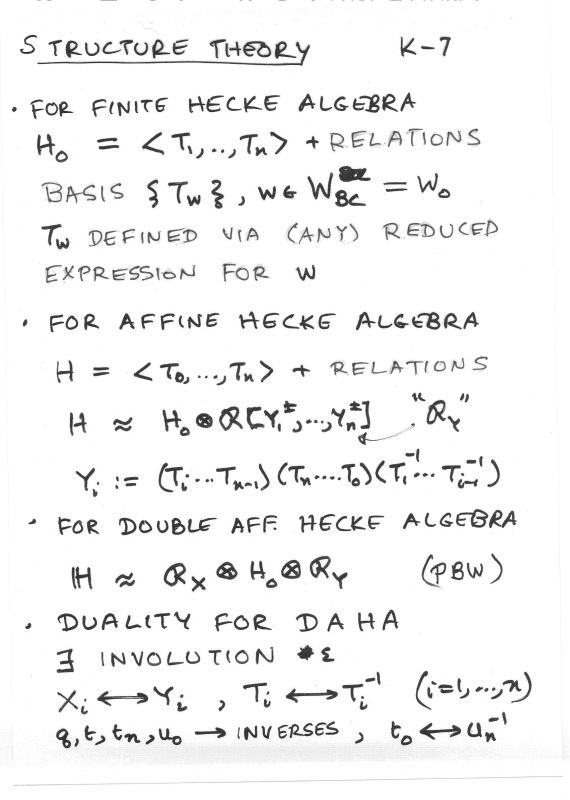 STRUCTURE THEORY K-7
• FOR FINITE HECKE ALGEBRA
H₀ = <T₁,..,Tₙ> + RELATIONS
BASIS {T_w}, w∈ W_BC = W₀
T_w DEFINED VIA (ANY) REDUCED
EXPRESSION FOR w
• FOR AFFINE HECKE ALGEBRA
H = <T₀,...,Tₙ> + RELATIONS
H ≈ H₀⊗R[Y₁^±,...,Yₙ^±] "R_Y"
Yᵢ := (Tᵢ...Tₙ₋₁)(Tₙ....T₀)(T₁⁻¹...Tᵢ₋₁⁻¹)
• FOR DOUBLE AFF. HECKE ALGEBRA
ℍ ≈ R_X ⊗ H₀ ⊗ R_Y (PBW)
• DUALITY FOR DAHA
∃ INVOLUTION ε
Xᵢ ⟷ Yᵢ , Tᵢ ⟷ Tᵢ⁻¹ (i=1,...,n)
q,t,tₙ,u₀ → INVERSES , t₀ ⟷ uₙ⁻¹